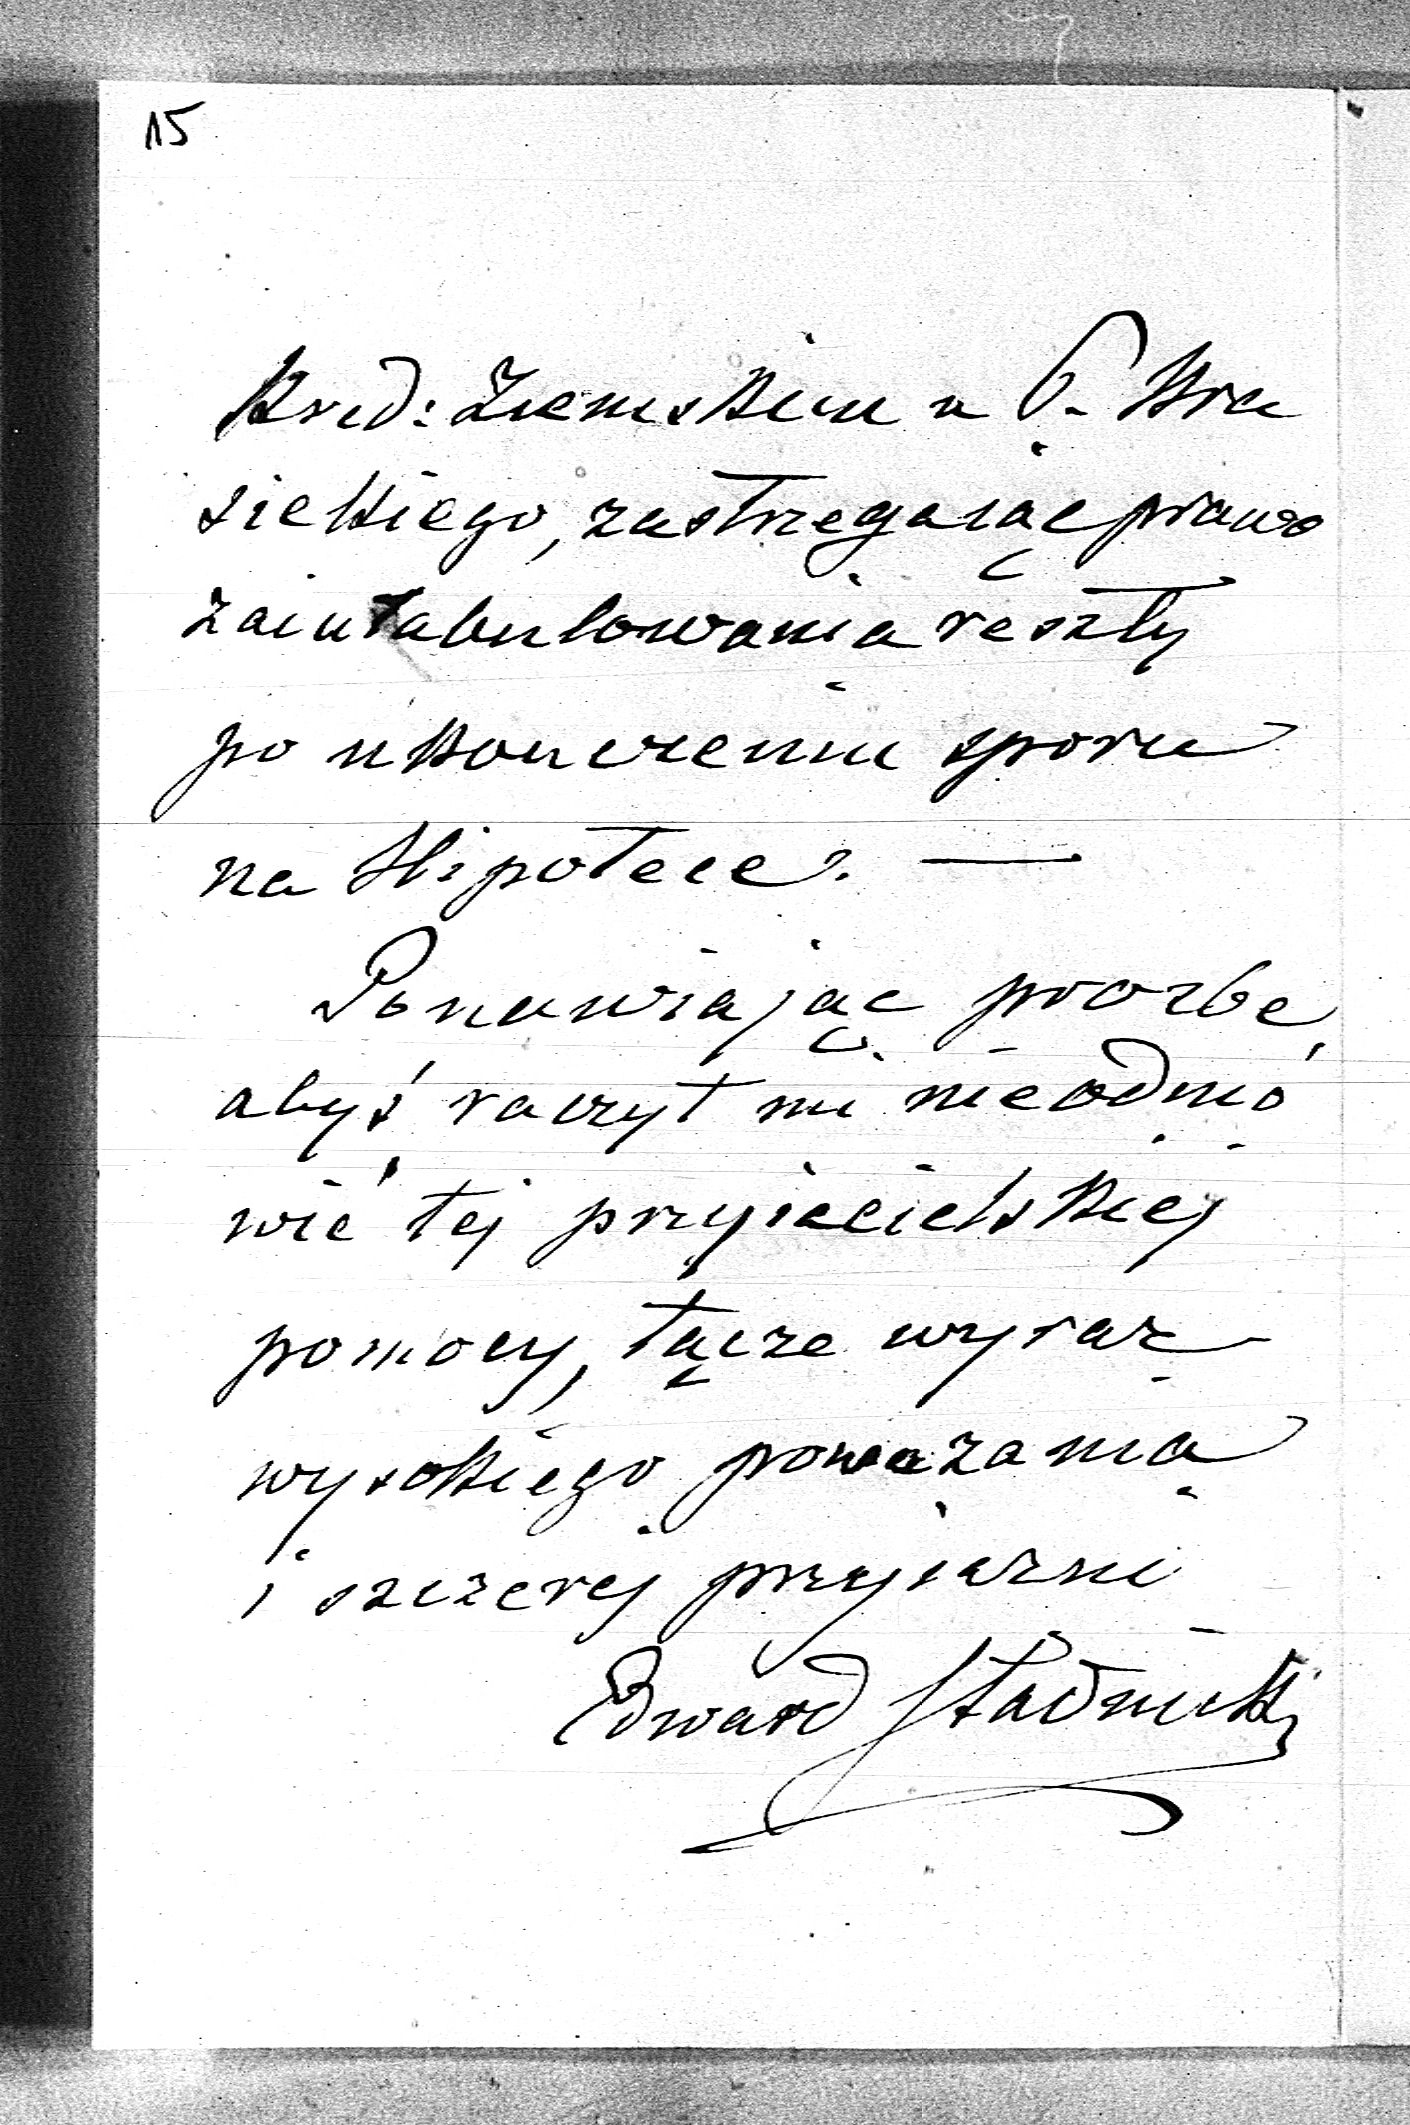 15
Kred: Ziemskim u P. Kra
sickiego, zastrzegając prawo
zaintabulowania reszty
po ukończeniu sporu
na Hipotece. —
Ponawiając prozbę
abyś raczył mi nieodmó
wić tej przyiacielskiej
pomocy, łączę wyraz
wysokiego poważania
i szczerej przyiazni
Edward Stadnicki